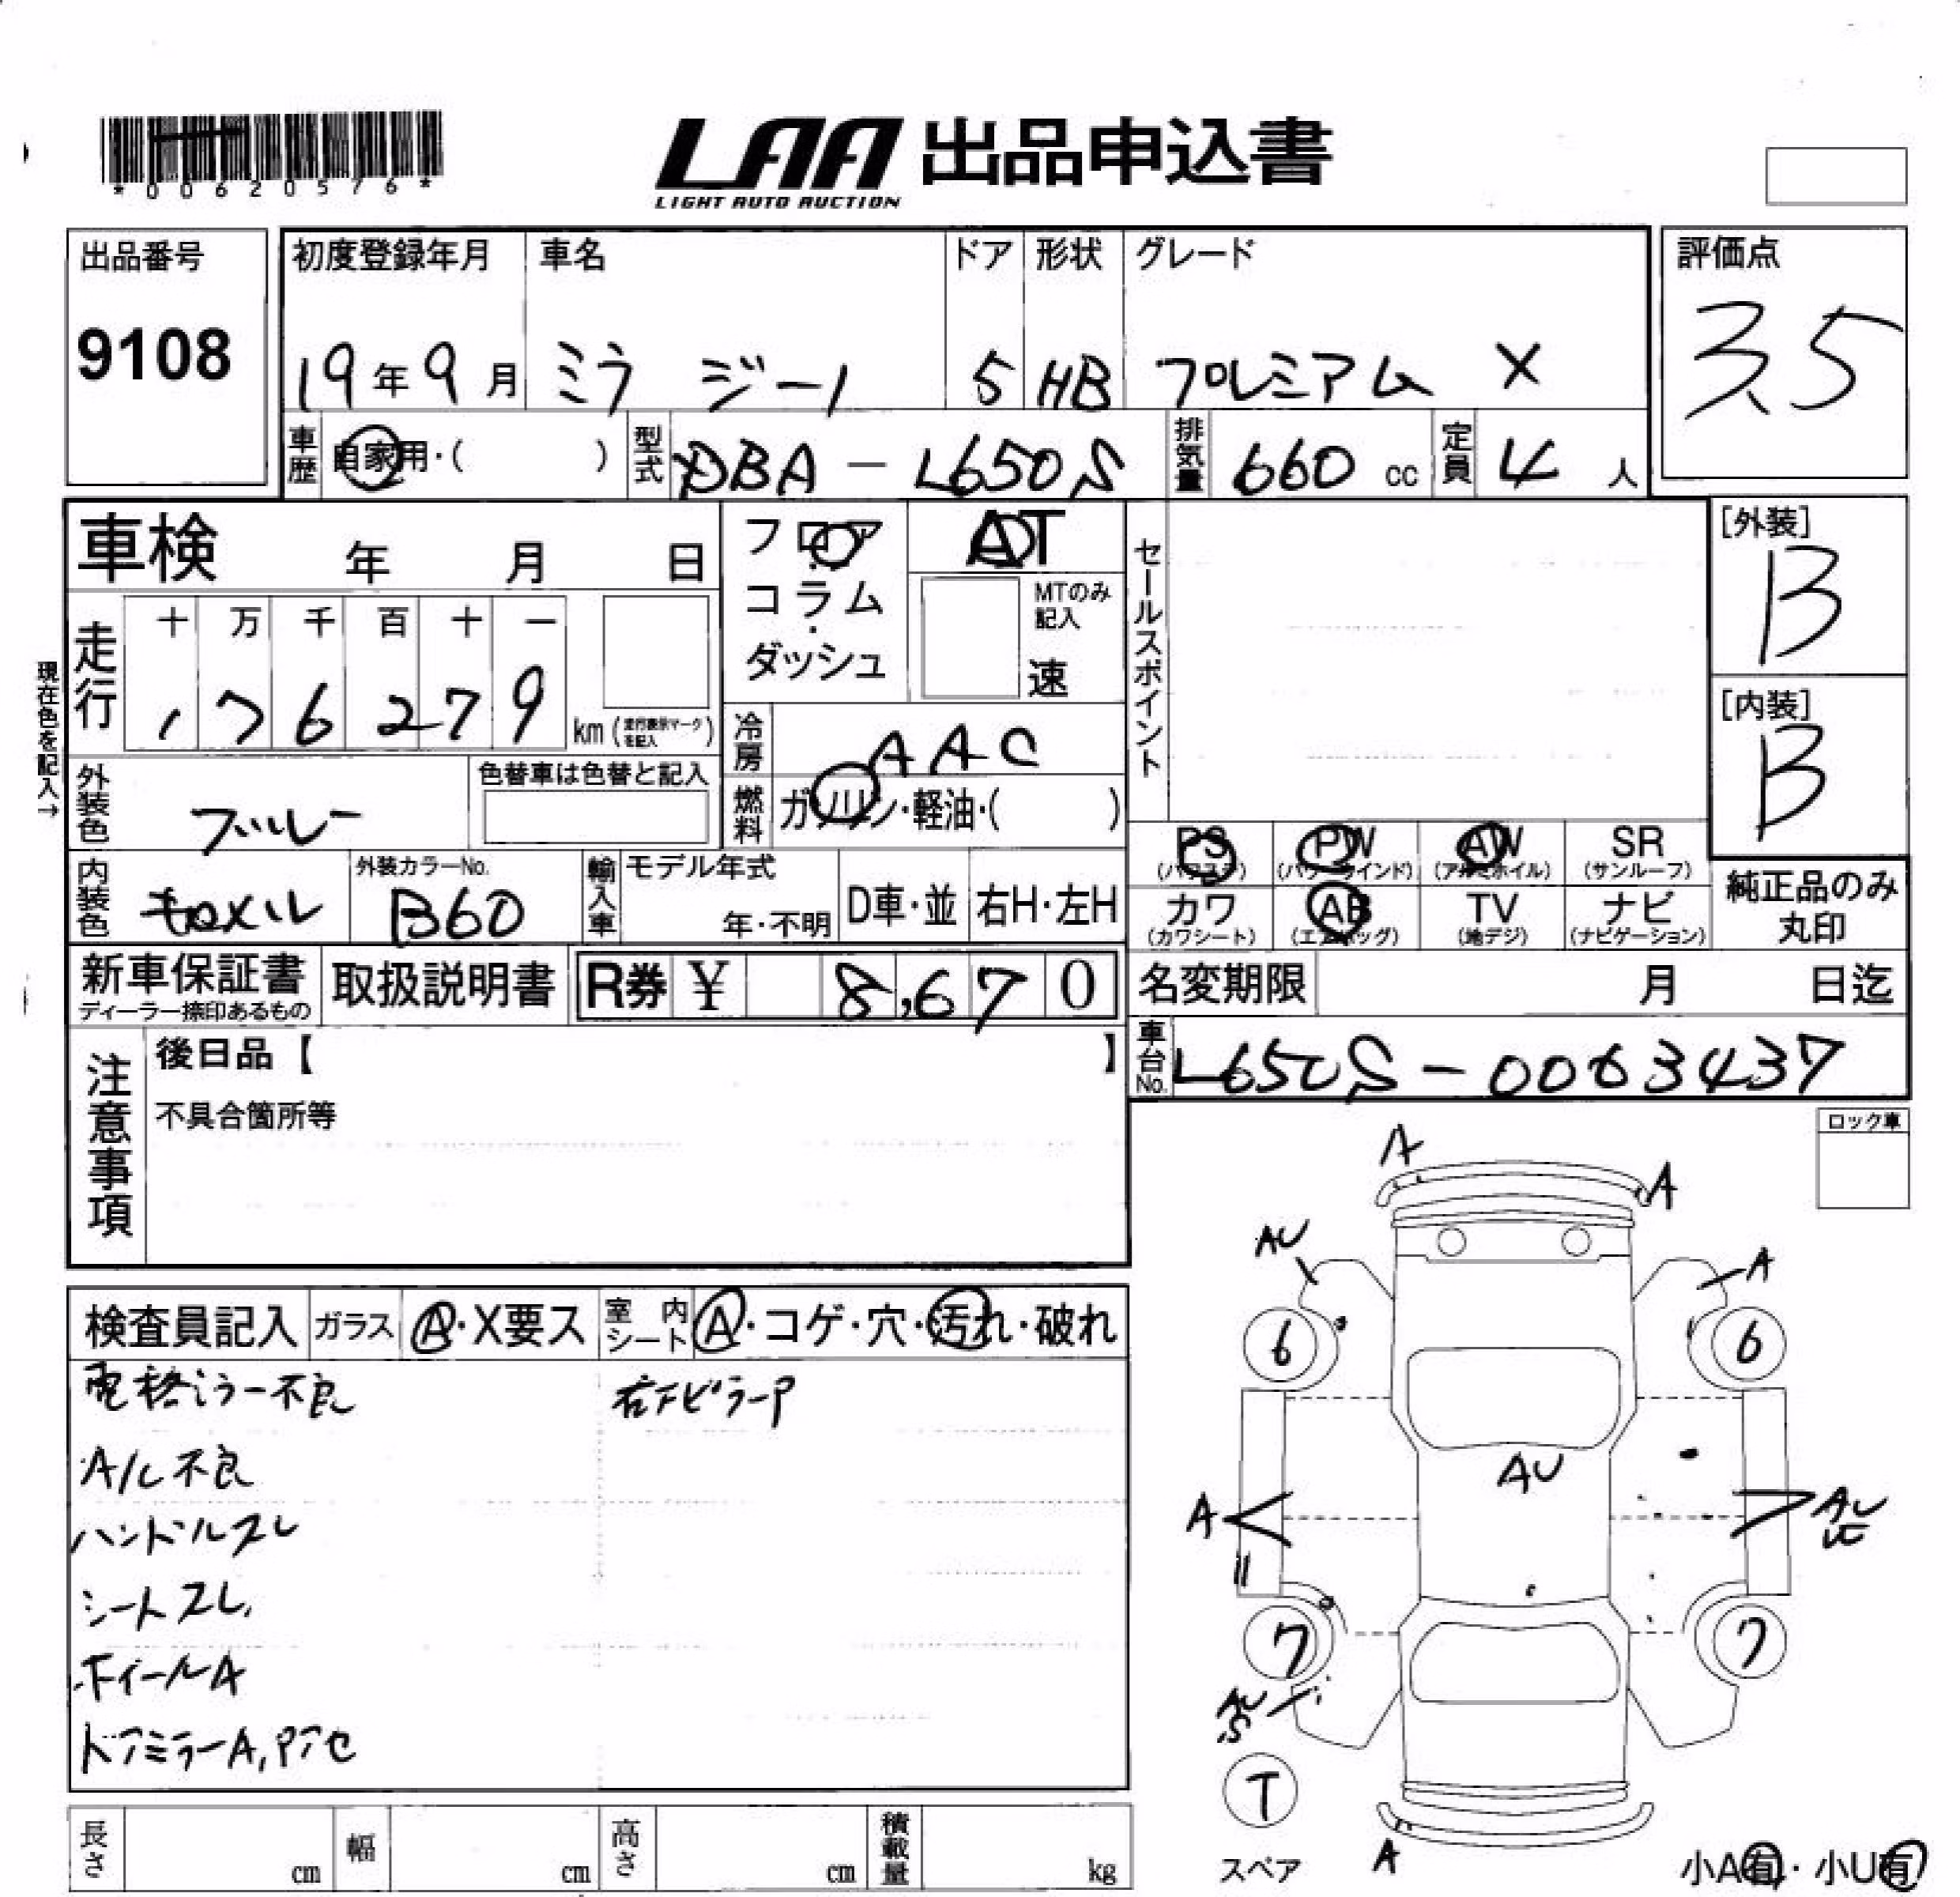 *00620576*
LAA 出品申込書
LIGHT AUTO AUCTION
出品番号
9108
初度登録年月 車名 ドア 形状 グレード
19年9月 ミラ ジーノ 5 HB プレミアム X
評価点
3.5
車歴 自家用・( ) 型式 DBA-L650S 排気量 660 cc 定員 4 人
車検 年 月 日
フロア・コラム・ダッシュ
AT
MTのみ記入
速
セールスポイント
[外装]
B
[内装]
B
現在色を記入→
走行 十 万 千 百 十 一
176279 km (走行表示マークを記入)
冷房 AAC
燃料 ガソリン・軽油・( )
外装色 ブルー 色替車は色替と記入
内装色 キャメル 外装カラーNo. B60
輸入車 モデル年式 年・不明 D車・並 右H・左H
PS (パワステ) PW (パワーウインド) AW (アルミホイル) SR (サンルーフ)
カワ (カワシート) AB (エアバッグ) TV (地デジ) ナビ (ナビゲーション)
純正品のみ
丸印
新車保証書 ディーラー捺印あるもの 取扱説明書 R券 ¥ 8,670
名変期限 月 日迄
車台No. L650S-0063437
注意事項
後日品【 】
不具合箇所等
ロック車
検査員記入 ガラス A・X要ス 室内シート A・コゲ・穴・汚れ・破れ
電格ミラー不良 右FピラーP
A/C不良
ハンドルスレ
シートスレ
ホイールA
ドアミラーA,Pアセ
A
A
AU
A
6
6
AU
A
AU
7
7
AU
S
T
スペア
A
小A有・小U有
長さ cm 幅 cm 高さ cm 積載量 kg